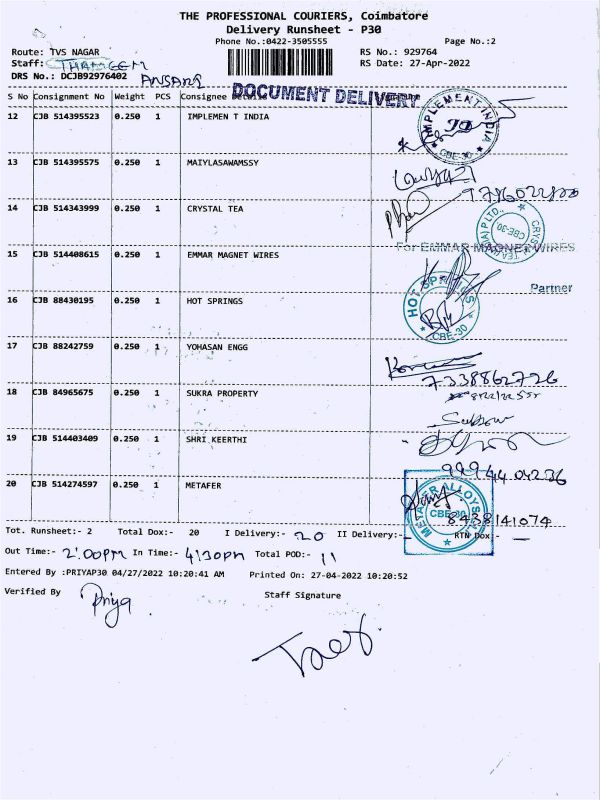 THE PROFESSIONAL COURIERS, Coimbatore
Delivery Runsheet - P30
Phone No.:0422-3505555 Page No.:2
Route: TVS NAGAR RS No.: 929764
Staff: THAMEEM RS Date: 27-Apr-2022
DRS No.: DCJB92976402 ANSARI
DOCUMENT DELIVERY
S No Consignment No Weight PCS Consignee
12 CJB 514395523 0.250 1 IMPLEMEN T INDIA
IMPLEMENT INDIA
CBE-30
13 CJB 514395575 0.250 1 MAIYLASAWAMSSY
14 CJB 514343999 0.250 1 CRYSTAL TEA
CBE-30
For EMMAR MAGNET WIRES
15 CJB 514408615 0.250 1 EMMAR MAGNET WIRES
Partner
16 CJB 88430195 0.250 1 HOT SPRINGS
HOT SPRINGS
CBE-30
17 CJB 88242759 0.250 1 YOHASAN ENGG
7338862726
18 CJB 84965675 0.250 1 SUKRA PROPERTY
19 CJB 514403409 0.250 1 SHRI KEERTHI
999 44 04236
20 CJB 514274597 0.250 1 METAFER
CBE-30
8438141074
Tot. Runsheet:- 2 Total Dox:- 20 I Delivery:- 20 II Delivery:- RTN Dox:- —
Out Time:- 2:00pm In Time:- 4:30pm Total POD:- 11
Entered By :PRIYAP30 04/27/2022 10:20:41 AM Printed On: 27-04-2022 10:20:52
Verified By Priya Staff Signature